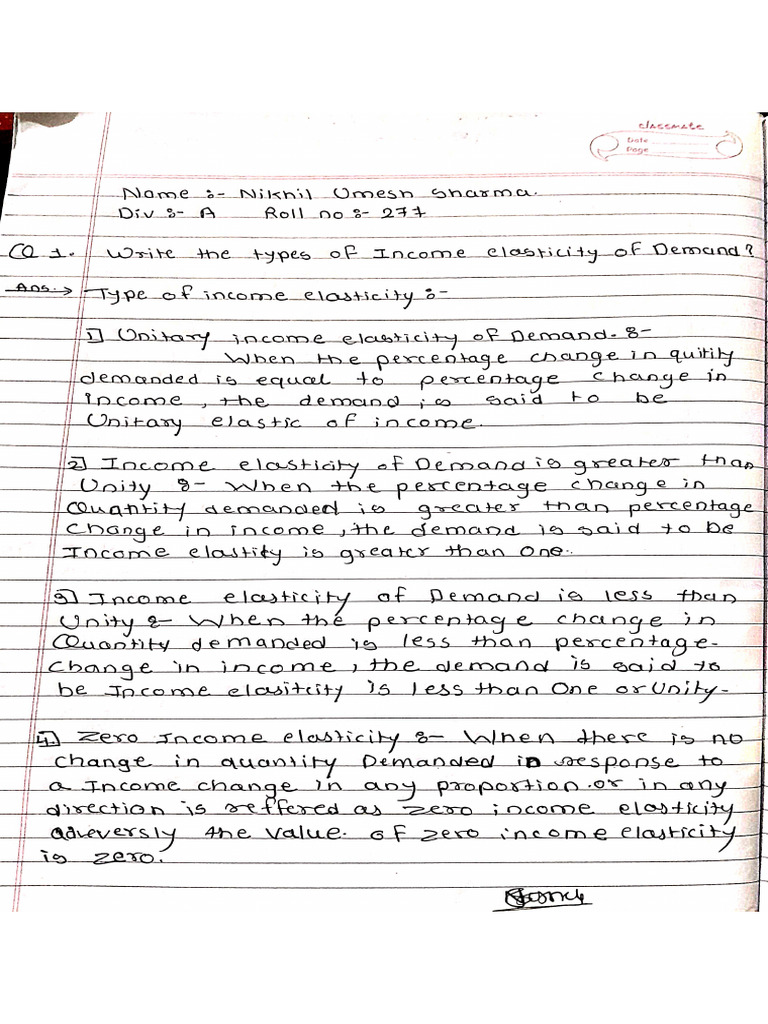 classmate
Date
Page
Name :- Nikhil Umesh Sharma.
Div :- A Roll no :- 277
Q 1. Write the types of Income elasticity of Demand?
Ans.→ Type of income elasticity :-
1) Unitary income elasticity of Demand. :-
When the percentage change in qutity
demanded is equal to percentage change in
income, the demand is said to be
Unitary elastic of income.
2) Income elasticity of Demand is greater than
Unity :- When the percentage change in
Quantity demanded is greater than percentage
change in income, the demand is said to be
Income elastity is greater than one.
3) Income elasticity of Demand is less than
Unity :- When the percentage change in
Quantity demanded is less than percentage-
change in income, the demand is said to
be Income elasitcity is less than One or Unity-
4.) Zero Income elasticity :- When there is no
change in quantity Demanded in response to
a Income change in any proportion.or in any
direction is reffered as zero income elasticity
adeversly the value. of zero income elasticity
is zero.